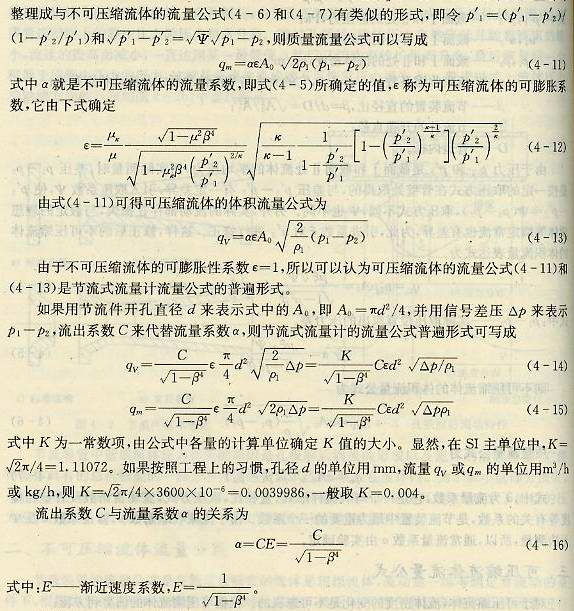 整理成与不可压缩流体的流量公式(4-6)和(4-7)有类似的形式,即令 p′₁=(p′₁-p′₂)/
(1-p′₂/p′₁)和√(p′₁-p′₂)=√Ψ√(p₁-p₂),则质量流量公式可以写成
qₘ=αεA₀√(2ρ₁(p₁-p₂)) (4-11)
式中 α 就是不可压缩流体的流量系数,即式(4-5)所确定的值,ε 称为可压缩流体的可膨胀系
数,它由下式确定
ε=(μκ/μ)·(√(1-μ²β⁴)/√(1-μκ²β⁴(p′₂/p′₁)^(2/κ)))·√((κ/(κ-1))·(1/(1-p′₂/p′₁))[1-(p′₂/p′₁)^((κ-1)/κ)](p′₂/p′₁)^(2/κ)) (4-12)
由式(4-11)可得可压缩流体的体积流量公式为
qᵥ=αεA₀√((2/ρ₁)(p₁-p₂)) (4-13)
由于不可压缩流体的可膨胀性系数 ε=1,所以可以认为可压缩流体的流量公式(4-11)和
(4-13)是节流式流量计流量公式的普遍形式。
如果用节流件开孔直径 d 来表示式中的 A₀,即 A₀=πd²/4,并用信号差压 Δp 来表示
p₁-p₂,流出系数 C 来代替流量系数 α,则节流式流量计的流量公式普遍形式可写成
q_V=(C/√(1-β⁴))ε(π/4)d²√((2/ρ₁)Δp)=(K/√(1-β⁴))Cεd²√(Δp/ρ₁) (4-14)
qₘ=(C/√(1-β⁴))ε(π/4)d²√(2ρ₁Δp)=(K/√(1-β⁴))Cεd²√(Δpρ₁) (4-15)
式中 K 为一常数项,由公式中各量的计算单位确定 K 值的大小。显然,在 SI 主单位中,K=
√2π/4=1.11072。如果按照工程上的习惯,孔径 d 的单位用 mm,流量 q_V 或 qₘ 的单位用m³/h
或 kg/h,则 K=√2π/4×3600×10⁻⁶=0.0039986,一般取 K=0.004。
流出系数 C 与流量系数 α 的关系为
α=CE=C/√(1-β⁴) (4-16)
式中:E——渐近速度系数,E=1/√(1-β⁴)。